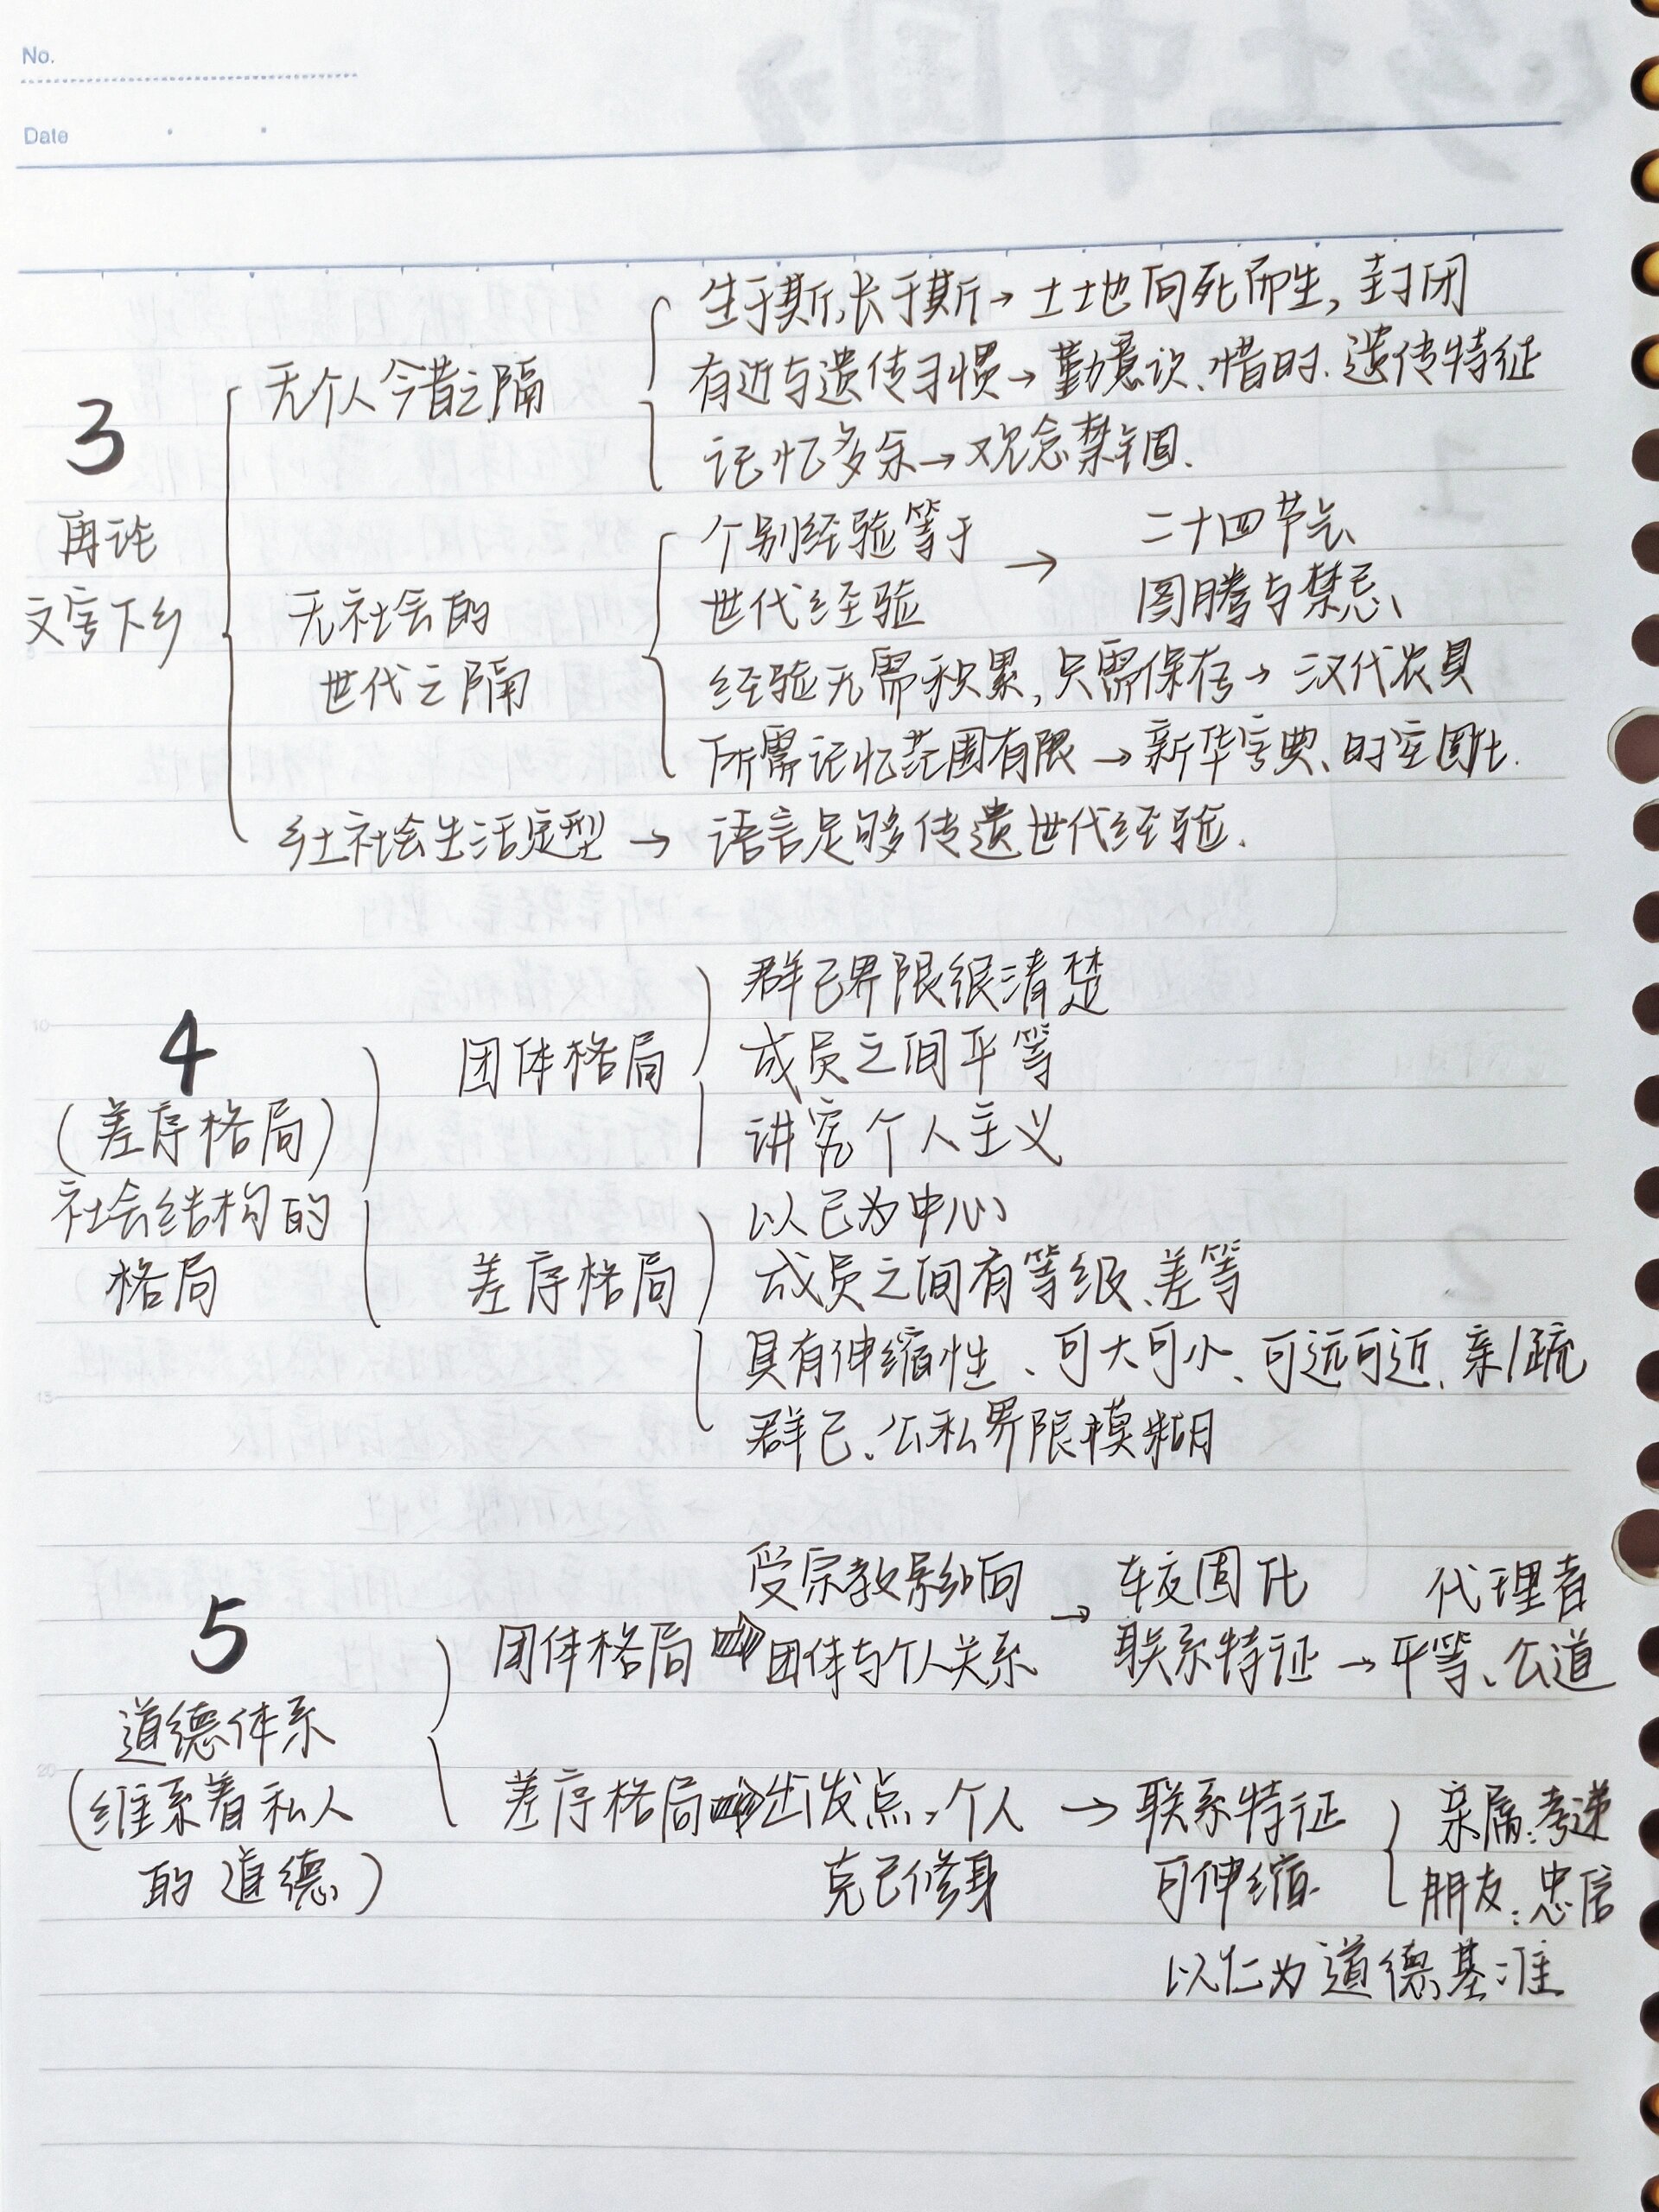 No.
Date
3
再论
文字下乡
无个人今昔之隔
生于斯,长于斯→土地向死而生,封闭
有近与遗传习惯→勤意识、惜时、遗传特征
记忆多余→观念禁锢.
无社会的
世代之隔
个别经验等于
世代经验
→
二十四节气
图腾与禁忌、
经验无需积累,只需保存→汉代农具
所需记忆范围有限→新华字典、时空固化.
乡土社会生活定型→语言足够传遗世代经验.
4
(差序格局)
社会结构的
格局
团体格局
群己界限很清楚
成员之间平等
讲究个人主义
差序格局
以己为中心
成员之间有等级、差等
具有伸缩性、可大可小、可远可近、亲/疏
群己、公私界限模糊
5
道德体系
(维系着私人
的道德)
受宗教影响→较固化 代理者
团体格局⇒团体与个人关系 联系特征→平等、公道
差序格局⇒出发点,个人→联系特征 亲属:孝递
克己修身 可伸缩. 朋友:忠信
以仁为道德基准
10
15
20